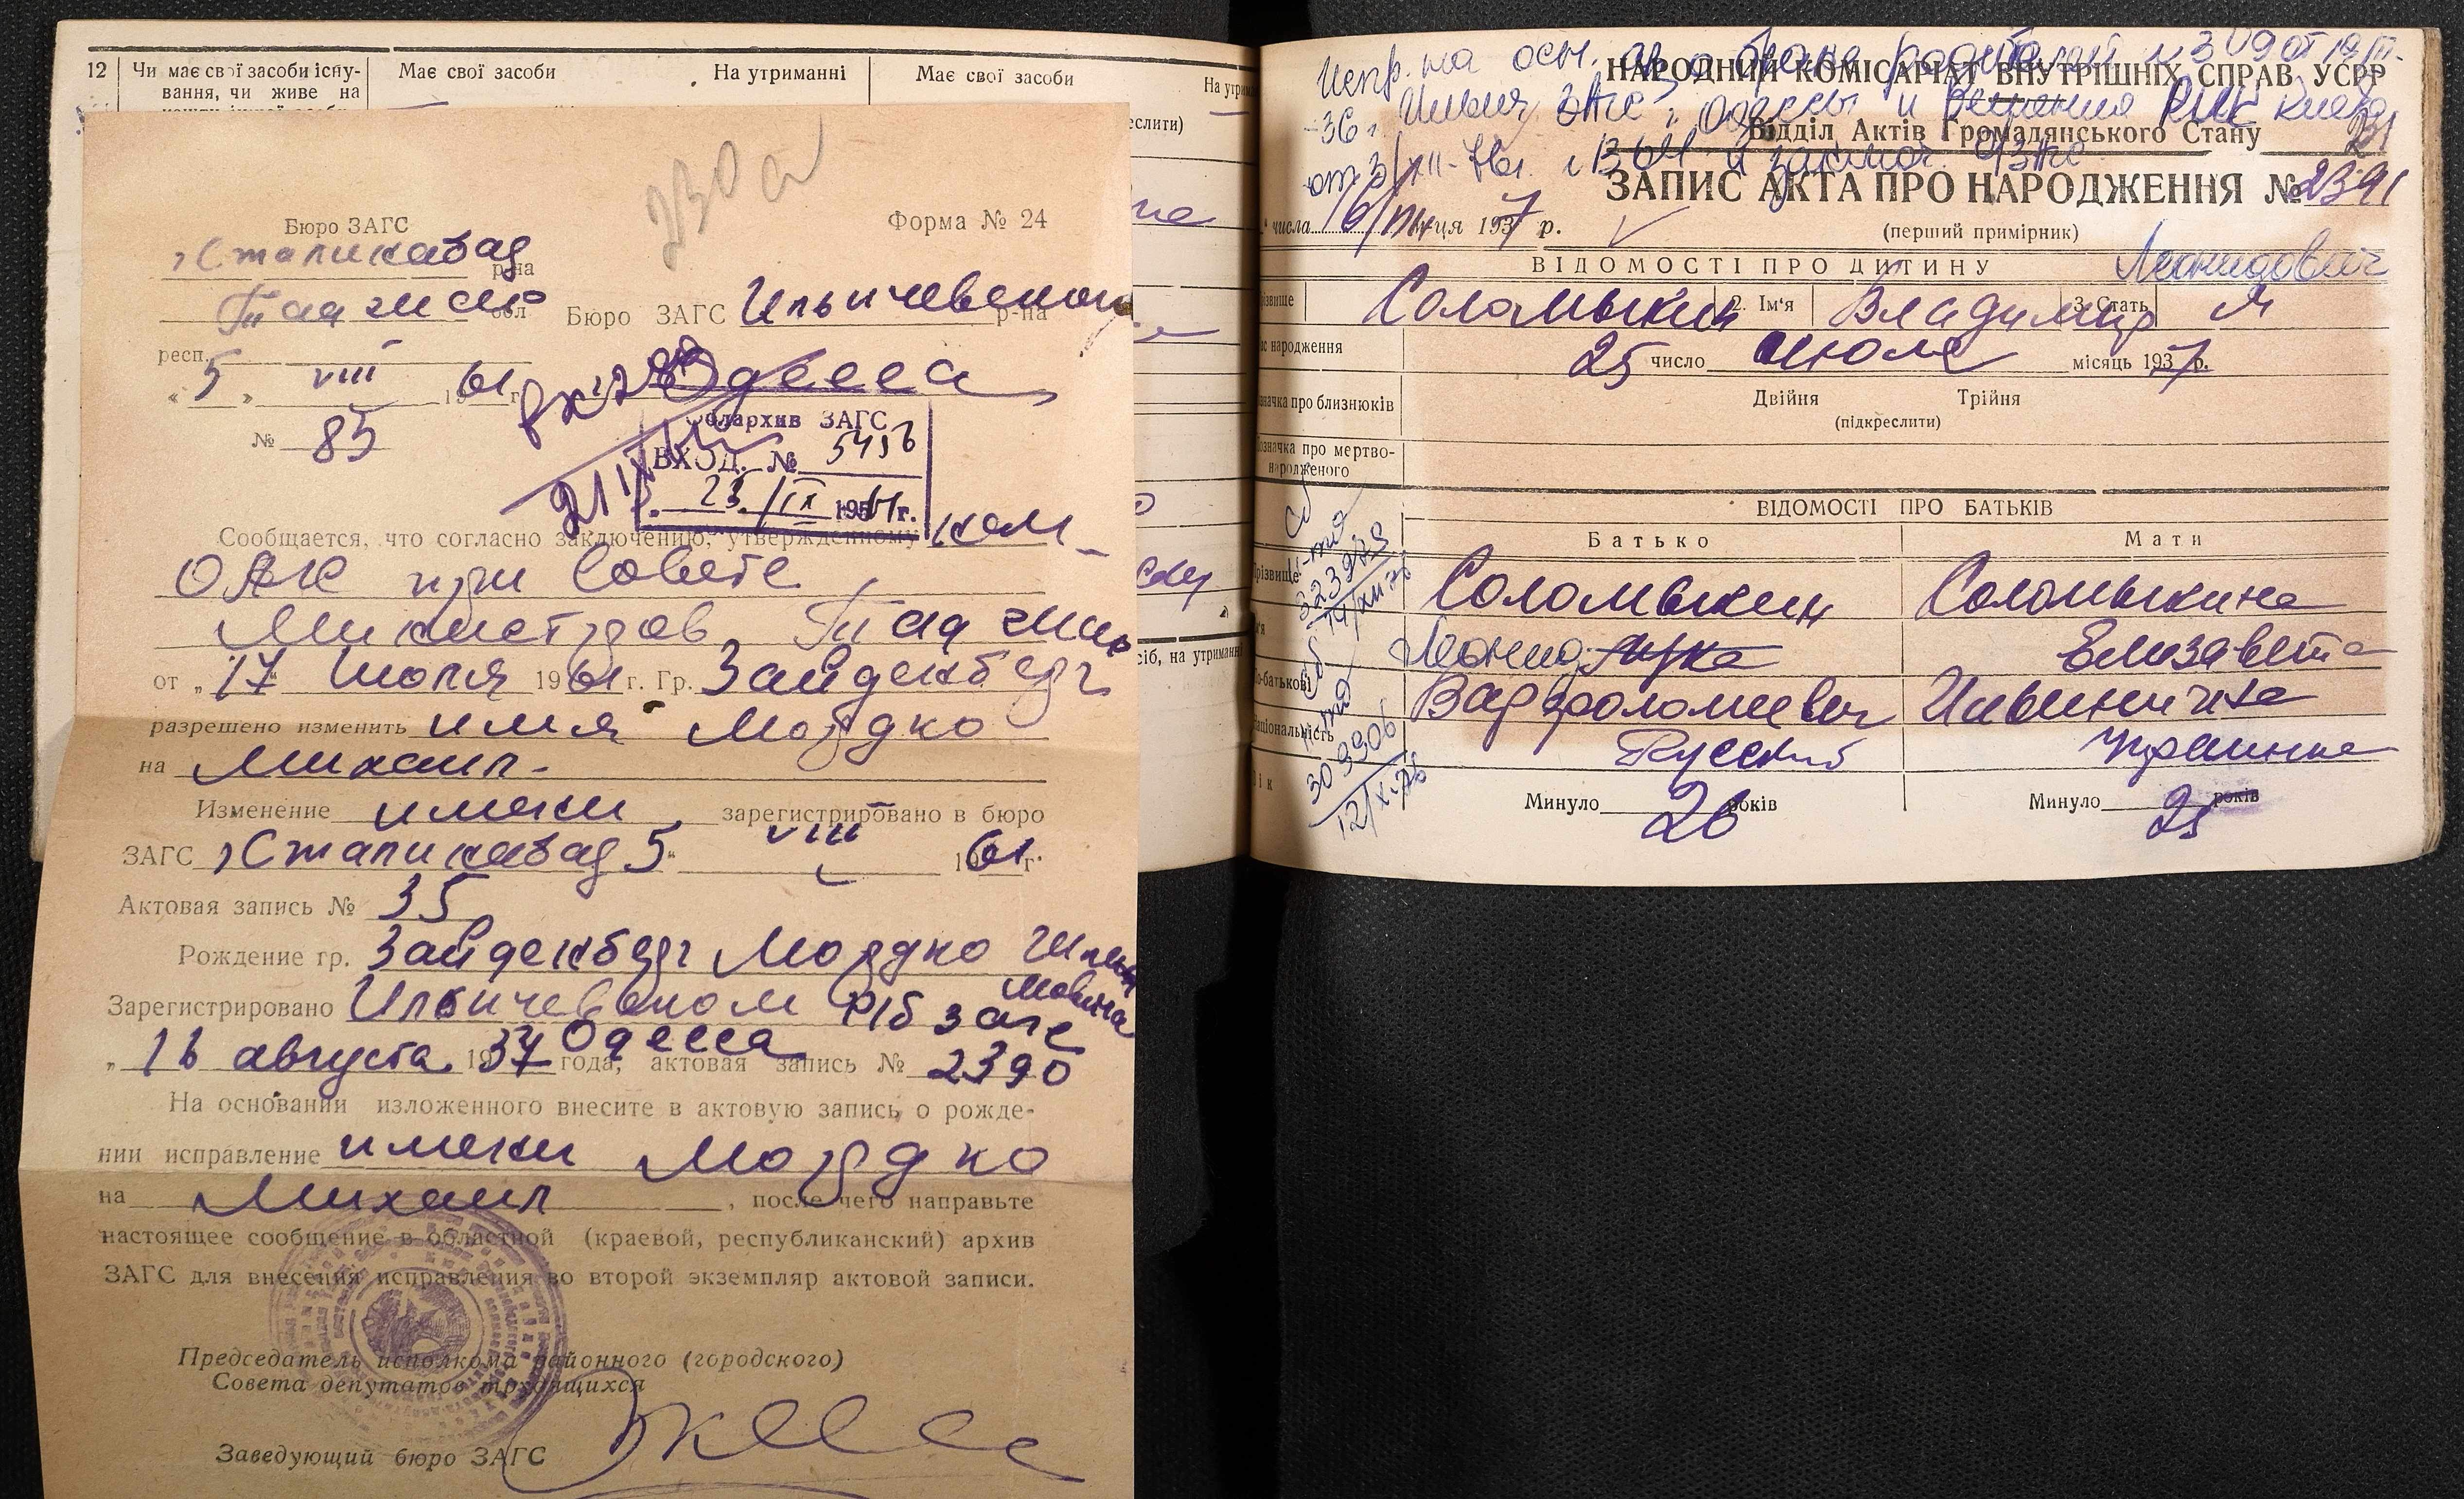 12 Чи має свої засоби існу- Має свої засоби На утриманні Має свої засоби
вання, чи живе на
230 а
Бюро ЗАГС Форма № 24
г Сталинабад р-на
Тадж ССР обл. Бюро ЗАГС Ильичевском р-на
респ. Одесса
„5" VIII 1961 г.
№ 85
Облархив ЗАГС
ВХОД. № 5456
23/IX 1961 г.
21/IX
Сообщается, что согласно заключению, утвержденному ком-
ОАГС при Совете
Министров Тадж
от „17" июля 1961 г. Гр. Зайденберг
разрешено изменить имя Мордко
на Михаил.
Изменение имени зарегистрировано в бюро
ЗАГС г Сталинабад 5 VIII 1961 г.
Актовая запись № 35
Рождение гр. Зайденберг Мордко
Зарегистрировано Ильичевском загс
Одесса
„16 августа 1937 года, актовая запись № 2390
На основании изложенного внесите в актовую запись о рожде-
нии исправление имени Мордко
на Михаил, после чего направьте
настоящее сообщение в областной (краевой, республиканский) архив
ЗАГС для внесения исправления во второй экземпляр актовой записи.
Председатель исполкома районного (городского)
Совета депутатов трудящихся
Заведующий бюро ЗАГС
сіб, на утриманні
Испр. на осн. о браке родителей № 309 от
НАРОДНИЙ КОМІСАРІАТ ВНУТРІШНІХ СПРАВ УСРР
36 г. Ильич ЗАГС г. Одессы и решения РИК
Відділ Актів Громадянського Стану
231
ЗАПИС АКТА ПРО НАРОДЖЕННЯ № 2391
числа 16 місяця 1937 р. (перший примірник)
ВІДОМОСТІ ПРО ДИТИНУ Леонидович
Соломыкин 2. Ім'я Владимир 3. Стать М
народження 25 число Июля місяць 1937 р.
близнюків Двійня Трійня
(підкреслити)
Позначка про мертво-
народженого
ВІДОМОСТІ ПРО БАТЬКІВ
Батько Мати
Прізвище Соломыкин Соломыкина
Леонид Елизавета
По-батькові Варфоломеевич
Національність Русский Украинка
Минуло 26 років Минуло 25 років
323973
14/XII 76
303906
12/XI-76